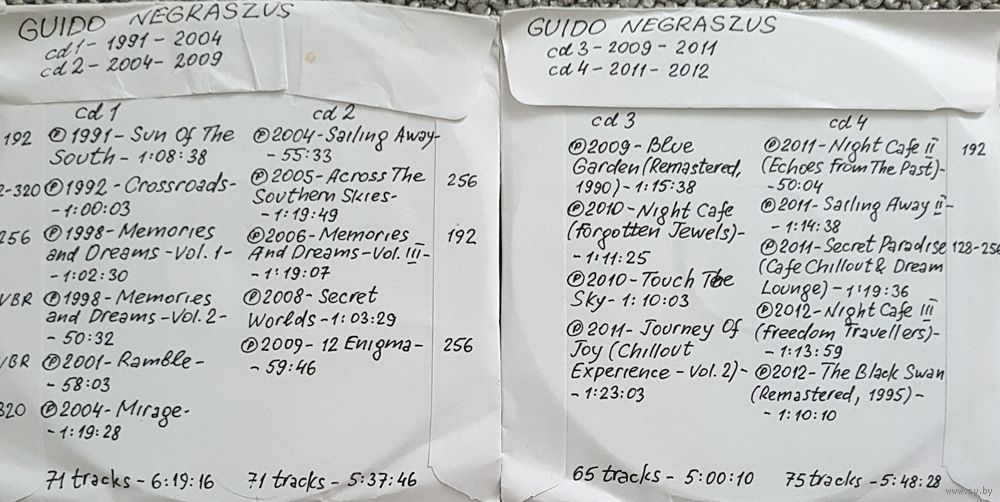 GUIDO NEGRASZUS
cd 1 - 1991 - 2004
cd 2 - 2004 - 2009
cd 1
192 ℗ 1991 - Sun Of The
South - 1:08:38
2-320 ℗ 1992 - Crossroads-
- 1:00:03
256 ℗ 1998 - Memories
and Dreams - Vol. 1-
- 1:02:30
VBR ℗ 1998 - Memories
and Dreams - Vol. 2-
- 50:32
VBR ℗ 2001 - Ramble -
- 58:03
320 ℗ 2004 - Mirage-
- 1:19:28
71 tracks - 6:19:16
cd 2
℗ 2004 - Sailing Away-
- 55:33
℗ 2005 - Across The 256
Southern Skies-
- 1:19:49
℗ 2006 - Memories 192
And Dreams - Vol. III -
- 1:19:07
℗ 2008 - Secret
Worlds - 1:03:29
℗ 2009 - 12 Enigma - 256
- 59:46
71 tracks - 5:37:46
GUIDO NEGRASZUS
cd 3 - 2009 - 2011
cd 4 - 2011 - 2012
cd 3
℗ 2009 - Blue
Garden (Remastered,
1990) - 1:15:38
℗ 2010 - Night Cafe
(Forgotten Jewels) -
- 1:11:25
℗ 2010 - Touch The
Sky - 1:10:03
℗ 2011 - Journey Of
Joy (Chillout
Experience - Vol. 2) -
- 1:23:03
65 tracks - 5:00:10
cd 4
℗ 2011 - Night Cafe II 192
(Echoes From The Past) -
- 50:04
℗ 2011 - Sailing Away II -
- 1:14:38
℗ 2011 - Secret Paradise 128-256
(Cafe Chillout & Dream
Lounge) - 1'19:36
℗ 2012 - Night Cafe III
(Freedom Travellers) -
- 1:13:59
℗ 2012 - The Black Swan
(Remastered, 1995) -
- 1:10:10
75 tracks - 5:48:28
www.ay.by